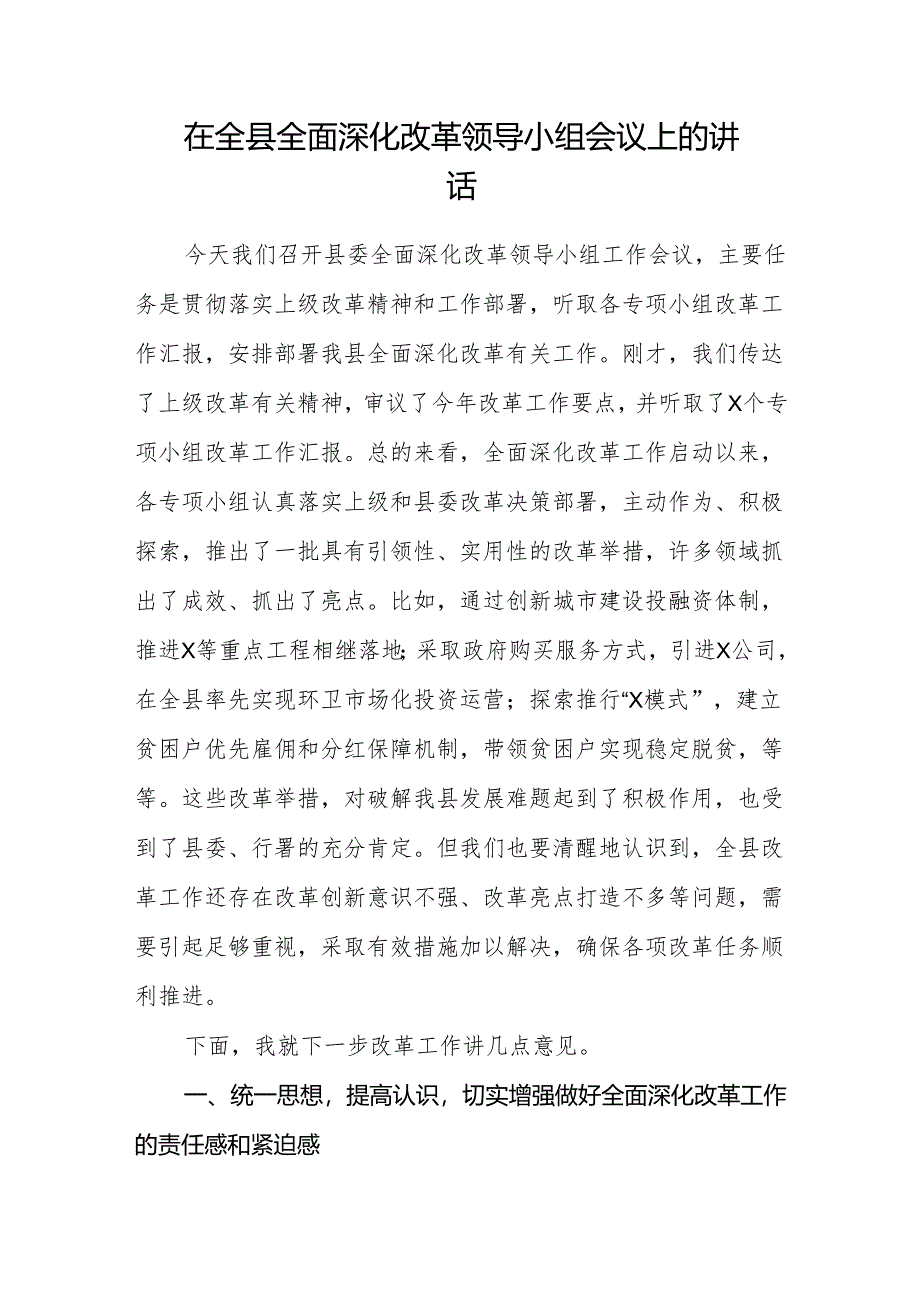 在全县全面深化改革领导小组会议上的讲
话
今天我们召开县委全面深化改革领导小组工作会议，主要任
务是贯彻落实上级改革精神和工作部署，听取各专项小组改革工
作汇报，安排部署我县全面深化改革有关工作。刚才，我们传达
了上级改革有关精神，审议了今年改革工作要点，并听取了X个专
项小组改革工作汇报。总的来看，全面深化改革工作启动以来，
各专项小组认真落实上级和县委改革决策部署，主动作为、积极
探索，推出了一批具有引领性、实用性的改革举措，许多领域抓
出了成效、抓出了亮点。比如，通过创新城市建设投融资体制，
推进X等重点工程相继落地；采取政府购买服务方式，引进X公司，
在全县率先实现环卫市场化投资运营；探索推行“X模式”，建立
贫困户优先雇佣和分红保障机制，带领贫困户实现稳定脱贫，等
等。这些改革举措，对破解我县发展难题起到了积极作用，也受
到了县委、行署的充分肯定。但我们也要清醒地认识到，全县改
革工作还存在改革创新意识不强、改革亮点打造不多等问题，需
要引起足够重视，采取有效措施加以解决，确保各项改革任务顺
利推进。
下面，我就下一步改革工作讲几点意见。
一、统一思想，提高认识，切实增强做好全面深化改革工作
的责任感和紧迫感